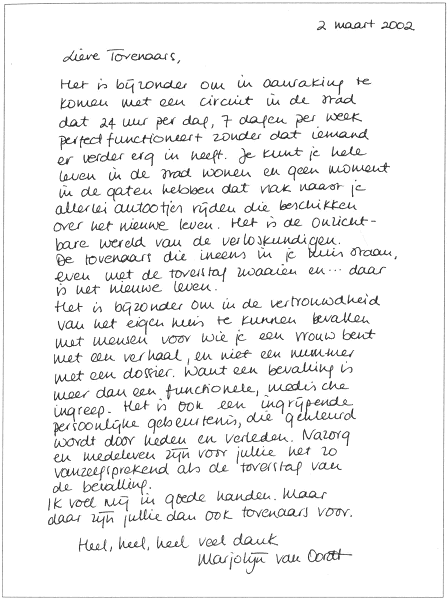 2 maart 2002
Lieve Tovenaars,
Het is bijzonder om in aanraking te
komen met een circuit in de stad
dat 24 uur per dag, 7 dagen per week
perfect functioneert zonder dat iemand
er verder erg in heeft. Je kunt je hele
leven in de stad wonen en geen moment
in de gaten hebben dat vlak naast je
allerlei autootjes rijden die beschikken
over het nieuwe leven. Het is de onzicht-
bare wereld van de verloskundigen.
De tovenaars die ineens in je huis staan,
even met de toverstaf zwaaien en... daar
is het nieuwe leven.
Het is bijzonder om in de vertrouwdheid
van het eigen huis te kunnen bevallen
met mensen voor wie je een vrouw bent
met een verhaal, en niet een nummer
met een dossier. Want een bevalling is
meer dan een functionele, medische
ingreep. Het is ook een ingrijpende
persoonlijke gebeurtenis, die gekleurd
wordt door heden en verleden. Nazorg
en medeleven zijn voor jullie net zo
vanzelfsprekend als de toverstaf van
de bevalling.
Ik voel mij in goede handen. Maar
daar zijn jullie dan ook tovenaars voor.
Heel, heel, heel veel dank
Marjolijn van Oordt